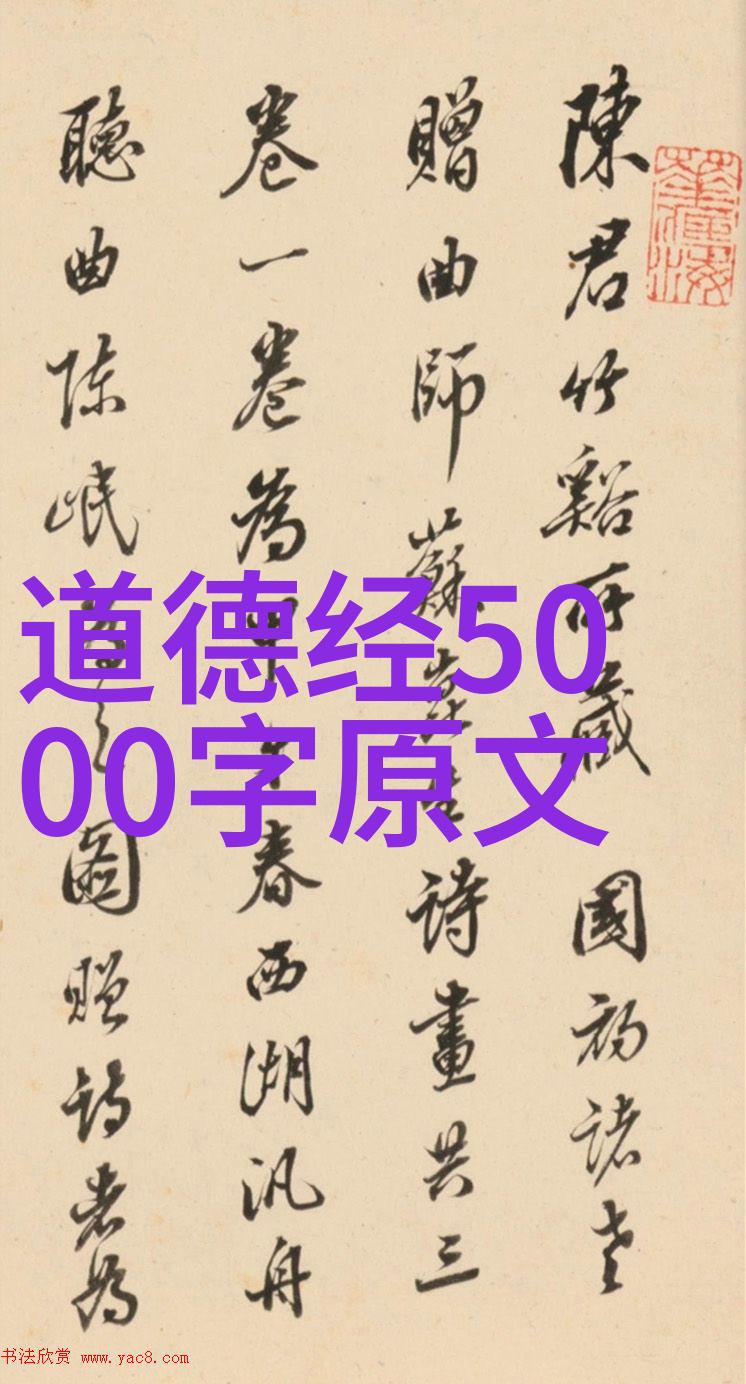 陳君竹谿所藏 國初諸老
贈曲師蘇崑生詩畫共三
卷一卷為春西湖汎舟
聽曲陳岷之圖贈詩者為
道德经50
00字原文
书法欣赏 www.yac8.com